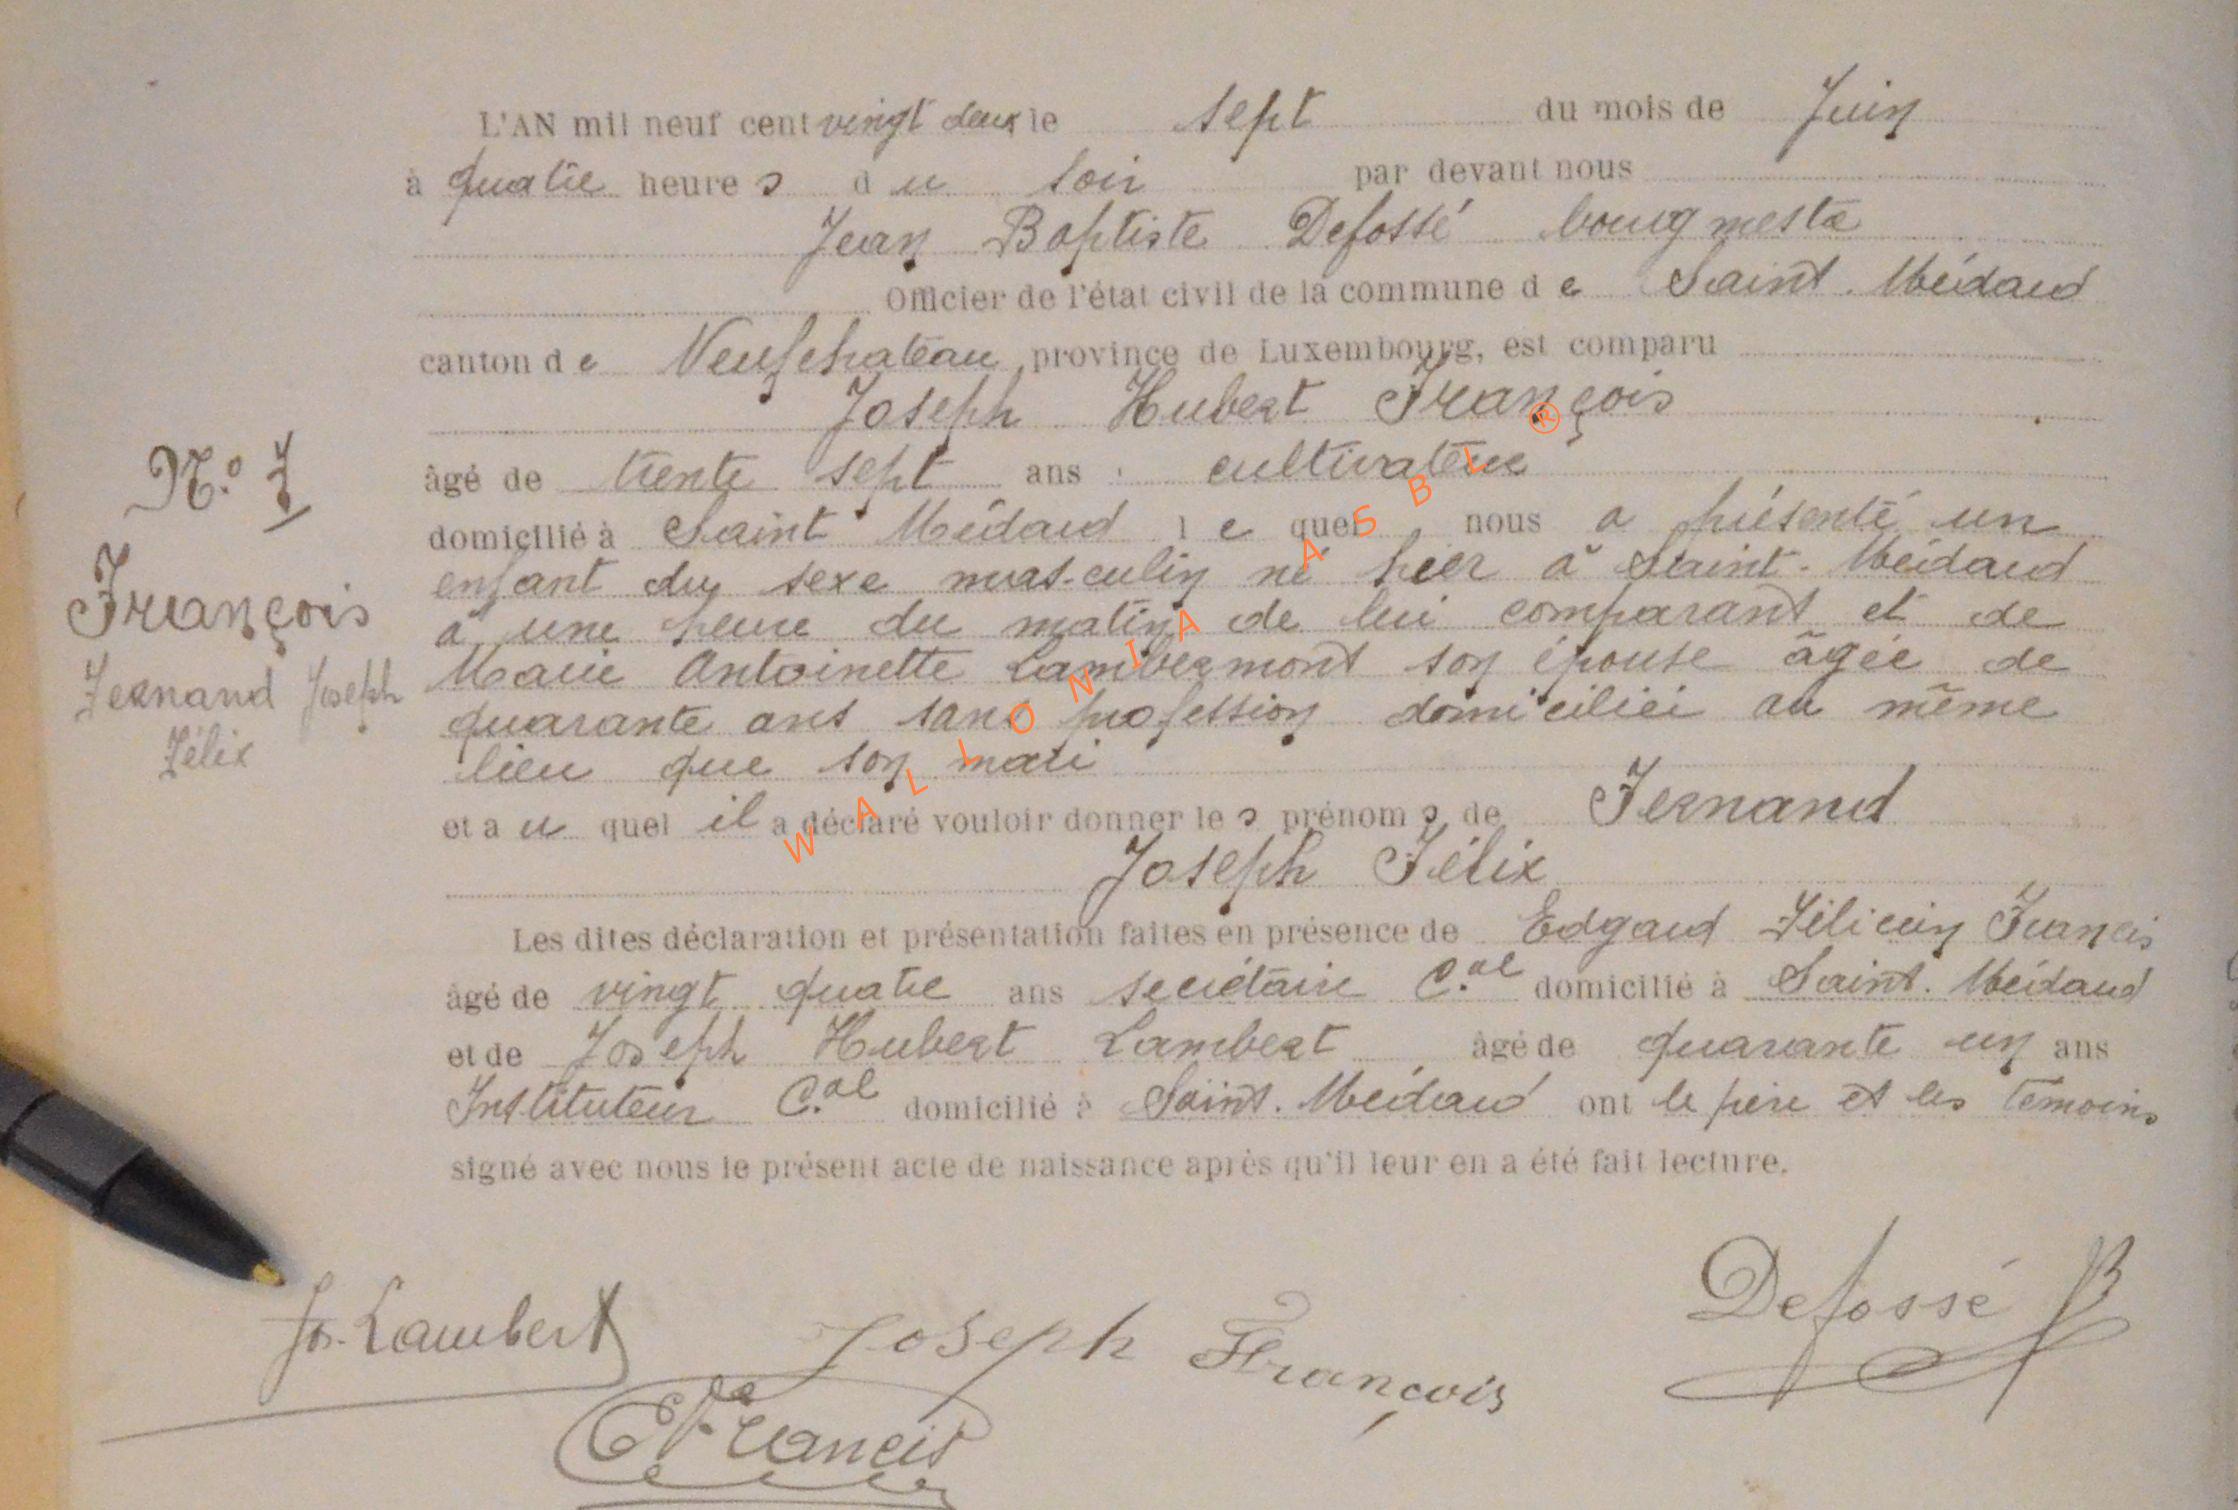 L'AN mil neuf cent vingt deux le sept du mois de Juin
à quatre heures du soir par devant nous
Jean Baptiste Defossé bourgmestre
Officier de l'état civil de la commune de Saint-Médard
canton de Neufchateau province de Luxembourg, est comparu
Joseph Hubert François
âgé de trente sept ans cultivateur
domicilié à Saint Médard lequel nous a présenté un
enfant du sexe masculin né hier à Saint-Médard
à une heure du matin de lui comparant et de
Marie Antoinette Lambermont son épouse âgée de
quarante ans sans profession domiciliée au même
lieu que son mari
et auquel il a déclaré vouloir donner les prénoms de Fernand
Joseph Félix
Les dites déclaration et présentation faites en présence de Edgard Félicien Francis
âgé de vingt quatre ans secrétaire C.al domicilié à Saint-Médard
et de Joseph Hubert Lambert âgé de quarante un ans
Instituteur C.al domicilié à Saint-Médard ont le père et les témoins
signé avec nous le présent acte de naissance après qu'il leur en a été fait lecture.
N.º 7
François
Fernand Joseph
Félix
Jos. Lambert
Joseph François
Defossé JB
E Francis
WALLONIA ASBL ®